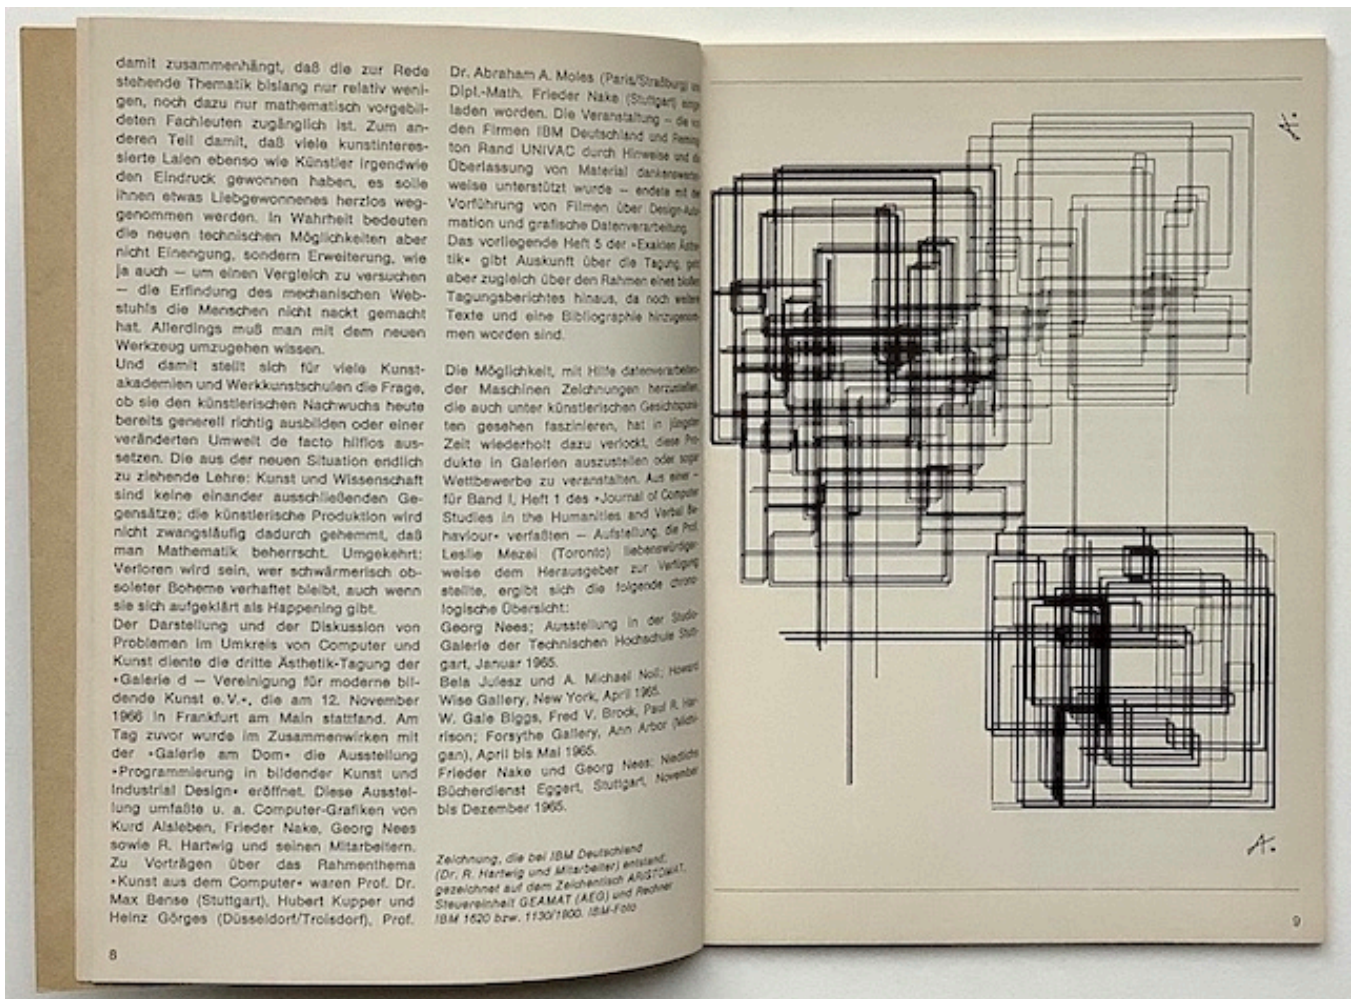 damit zusammenhängt, daß die zur Rede
stehende Thematik bislang nur relativ weni-
gen, noch dazu nur mathematisch vorgebil-
deten Fachleuten zugänglich ist. Zum an-
deren Teil damit, daß viele kunstinteres-
sierte Laien ebenso wie Künstler irgendwie
den Eindruck gewonnen haben, es solle
ihnen etwas Liebgewonnenes herzlos weg-
genommen werden. In Wahrheit bedeuten
die neuen technischen Möglichkeiten aber
nicht Einengung, sondern Erweiterung, wie
ja auch — um einen Vergleich zu versuchen
— die Erfindung des mechanischen Web-
stuhls die Menschen nicht nackt gemacht
hat. Allerdings muß man mit dem neuen
Werkzeug umzugehen wissen.
Und damit stellt sich für viele Kunst-
akademien und Werkkunstschulen die Frage,
ob sie den künstlerischen Nachwuchs heute
bereits generell richtig ausbilden oder einer
veränderten Umwelt de facto hilflos aus-
setzen. Die aus der neuen Situation endlich
zu ziehende Lehre: Kunst und Wissenschaft
sind keine einander ausschließenden Ge-
gensätze; die künstlerische Produktion wird
nicht zwangsläufig dadurch gehemmt, daß
man Mathematik beherrscht. Umgekehrt:
Verloren wird sein, wer schwärmerisch ob-
soleter Boheme verhaftet bleibt, auch wenn
sie sich aufgeklärt als Happening gibt.
Der Darstellung und der Diskussion von
Problemen im Umkreis von Computer und
Kunst diente die dritte Ästhetik-Tagung der
»Galerie d — Vereinigung für moderne bil-
dende Kunst e.V.«, die am 12. November
1966 in Frankfurt am Main stattfand. Am
Tag zuvor wurde im Zusammenwirken mit
der »Galerie am Dom« die Ausstellung
»Programmierung in bildender Kunst und
Industrial Design« eröffnet. Diese Ausstel-
lung umfaßte u. a. Computer-Grafiken von
Kurd Alsleben, Frieder Nake, Georg Nees
sowie R. Hartwig und seinen Mitarbeitern.
Zu Vorträgen über das Rahmenthema
»Kunst aus dem Computer« waren Prof. Dr.
Max Bense (Stuttgart), Hubert Kupper und
Heinz Görges (Düsseldorf/Troisdorf), Prof.
8
Dr. Abraham A. Moles (Paris/Straßburg) und
Dipl.-Math. Frieder Nake (Stuttgart) einge-
laden worden. Die Veranstaltung — die von
den Firmen IBM Deutschland und Reming-
ton Rand UNIVAC durch Hinweise und die
Überlassung von Material dankenswerter-
weise unterstützt wurde — endete mit der
Vorführung von Filmen über Design-Auto-
mation und grafische Datenverarbeitung.
Das vorliegende Heft 5 der »Exakten Ästhe-
tik« gibt Auskunft über die Tagung, geht
aber zugleich über den Rahmen eines bloßen
Tagungsberichtes hinaus, da noch weitere
Texte und eine Bibliographie hinzugenom-
men worden sind.
Die Möglichkeit, mit Hilfe datenverarbeiten-
der Maschinen Zeichnungen herzustellen,
die auch unter künstlerischen Gesichtspunk-
ten gesehen faszinieren, hat in jüngster
Zeit wiederholt dazu verlockt, diese Pro-
dukte in Galerien auszustellen oder sogar
Wettbewerbe zu veranstalten. Aus einer —
für Band I, Heft 1 des »Journal of Computer
Studies in the Humanities and Verbal Be-
haviour« verfaßten — Aufstellung, die Prof.
Leslie Mezei (Toronto) liebenswürdiger-
weise dem Herausgeber zur Verfügung
stellte, ergibt sich die folgende chrono-
logische Übersicht:
Georg Nees; Ausstellung in der Studio-
Galerie der Technischen Hochschule Stutt-
gart, Januar 1965.
Bela Julesz und A. Michael Noll; Howard
Wise Gallery, New York, April 1965.
W. Gale Biggs, Fred V. Brock, Paul R. Har-
rison; Forsythe Gallery, Ann Arbor (Michi-
gan), April bis Mai 1965.
Frieder Nake und Georg Nees; Niedlichs
Bücherdienst Eggert, Stuttgart, November
bis Dezember 1965.
Zeichnung, die bei IBM Deutschland
(Dr. R. Hartwig und Mitarbeiter) entstand;
gezeichnet auf dem Zeichentisch ARISTOMAT,
Steuereinheit GEAMAT (AEG) und Rechner
IBM 1620 bzw. 1130/1800. IBM-Foto
A.
A.
9